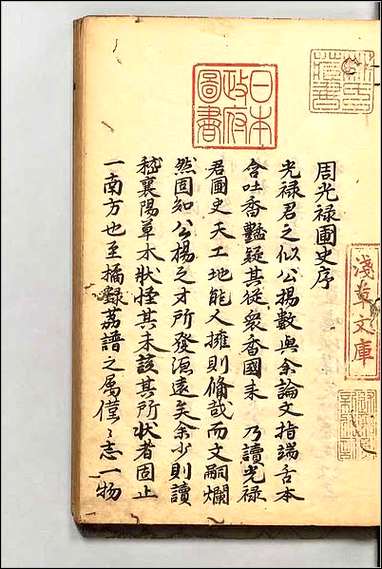 周光禄圃史序
光禄君之似公揚數與余論文指端舌本
含吐香豔疑其從衆香國来 乃讀光禄
君圃史天工地能人擁則脩哉而文嗣爛
然固知公揚之才所發源遠矣余少則讀
嵇襄陽草木狀怪其未該其所状者固止
一南方也至橘録荔譜之属僅〻志一物
日本
政府
圖書
淺草文庫